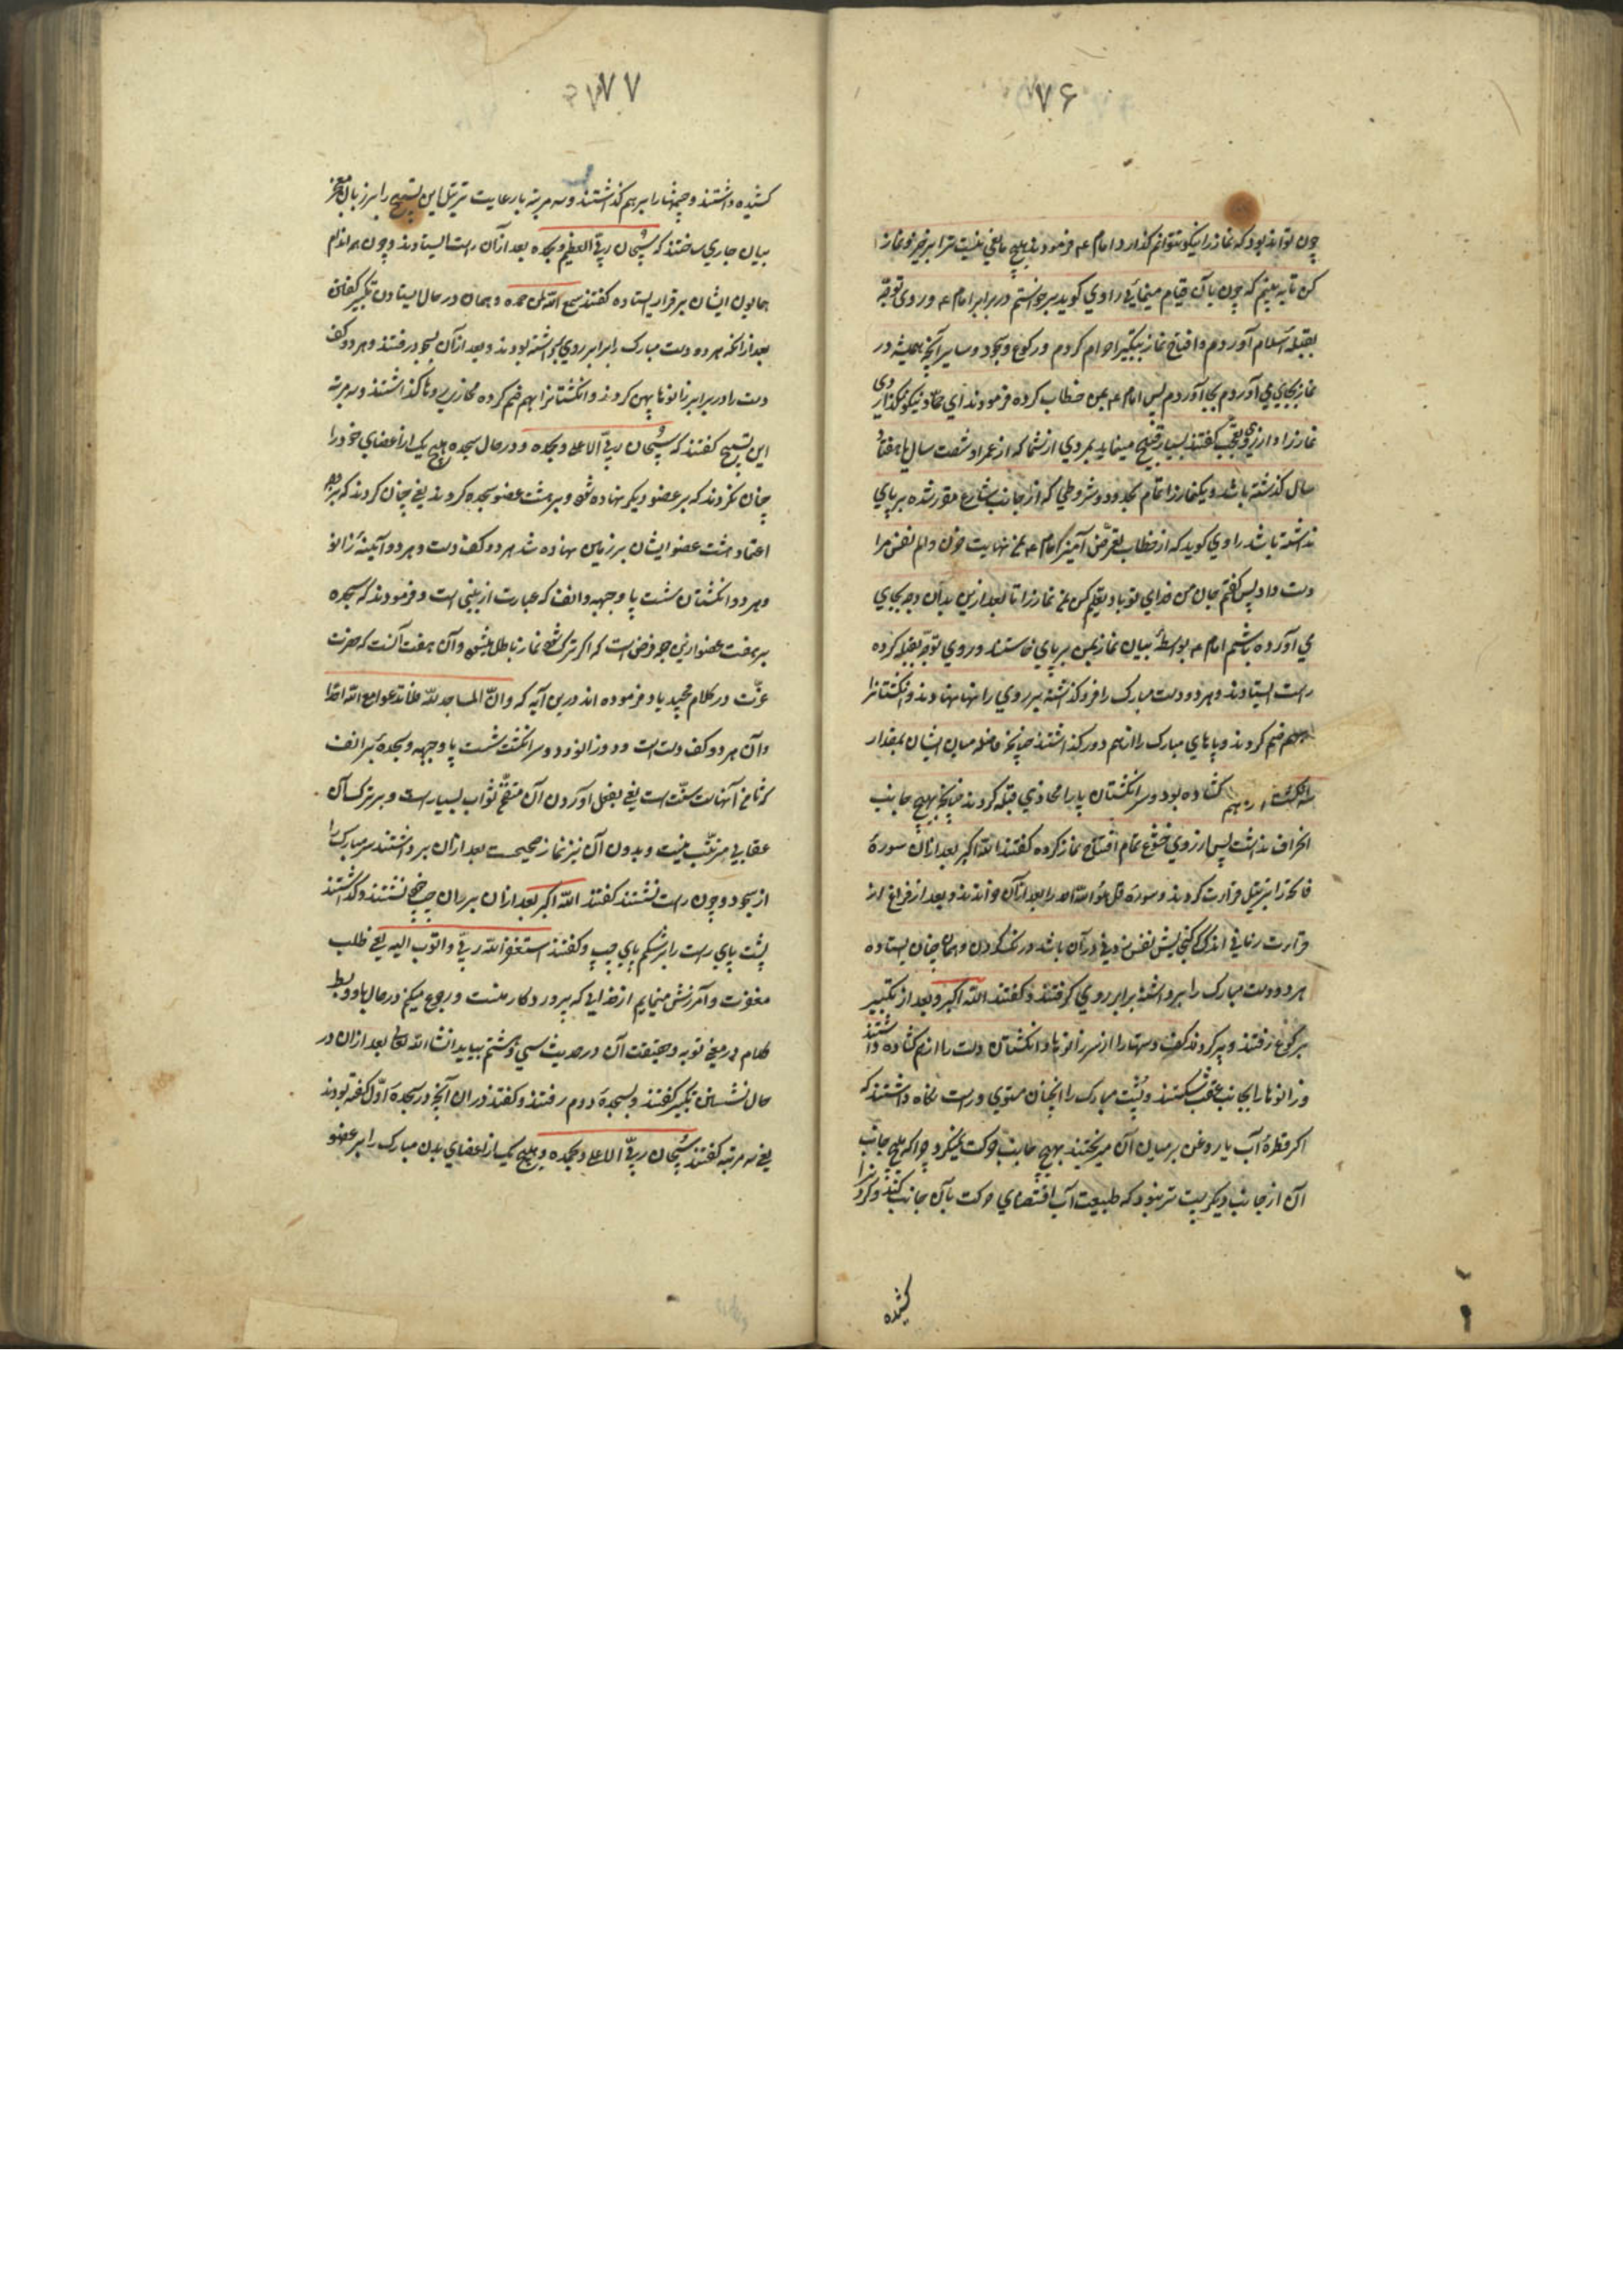 ۷۶
چون تواند بود که نماز را نیکو نتوانم گذارد امام ع فرمودند هیچ مانعی نیست ترا برخیز و نماز
کن تا به بینم که چون بآن قیام مینمایی راوی کوید برخواستم در برابر امام ع و روی توجه
بقبله اسلام آوردم و افتتاح نماز بتکبیر احرام کردم و رکوع و سجود و سایر آنچه همیشه در
نماز بجای می آوردم بجا آوردم پس امام ع بمن خطاب کرده فرمودند ای حماد نیکو نکذاردی
نماز را و از روی تعجب کفتند بسیار قبیح مینماید بمردی از شما که از عمر او شصت سال یا هفتاد
سال کذشته باشد و یکنماز را تمام بحدود و شروطی که از جانب شارع مقرر شده برپای
نداشته باشد راوی کوید که از خطاب تعرض آمیز امام ع مرا نهایت حزن و الم نفس مرا
دست داد پس کفتم جان من فدای تو باد تعلیم کن مرا نماز را تا بعد ازین بدان وجه بجای
می آورده باشم امام ع بواسطهٔ بیان نماز بمن برپای خاستند و روی توجه بقبله کرده
راست ایستادند و هر دو دست مبارک را فرو کذاشته بر روی رانها نهادند و انکشتانرا
بهم ضم کردند و پاهای مبارک را از هم دور کذاشتند چنانچه فاصله میان ایشان بمقدار
سه انکشت از هم کشاده بود و سر انکشتان پا را محاذی قبله کردند چنانچه بهیچ جانب
انحراف نداشت پس از روی خشوع تمام افتتاح نماز کرده کفتند الله اکبر بعد از آن سورهٔ
فاتحه را بترتیل قراءت کردند و سورهٔ قل هو الله احد را بعد از آن خواندند و بعد از فراغ از
قراءت زمانی اندک که کنجایش نفس زدنی در آن باشد درنک کردن و همان چنان ایستاده
هر دو دست مبارک را برداشته برابر روی کرفتند و کفتند الله اکبر و بعد از تکبیر
برکوع رفتند و پر کردند کف دستها را از سر زانوها و انکشتان دست را از هم کشاده داشتند
و زانوها را بجانب عقب شکستند و پشت مبارک را آنچنان مستوی و راست نکاه داشتند که
اکر قطرهٔ آب یا روغن بر میان آن میریختند بهیچ جانب حرکت نمیکرد چرا که هیچ جانب
آن از جانب دیکر پست تر نبود که طبیعت آب اقتضای حرکت بآن جانب کند و کردنرا
کشیده
۷۷
کشیده داشتند و چشمها را بر هم کذاشتند و سه مرتبه با رعایت ترتیل این تسبیح را بر زبان معجز
بیان جاری ساختند که سبحان ربی العظیم و بحمده بعد از آن راست ایستادند و چون اندام
همایون ایشان برقرار ایستاده کفتند سمع الله لمن حمده و همان در حال ایستادن تکبیر کفتن
بعد از آنکه هر دو دست مبارک را برابر روی برداشته بودند و بعد از آن بسجود رفتند و هر دو کف
دست را در برابر زانوها پهن کردند و انکشتانرا بهم ضم کرده محاذی روها کذاشتند و سه مرتبه
این تسبیح کفتند که سبحان ربی الاعلی و بحمده و در حال سجده هیچ یک از اعضای خود را
چنان نکردند که بر عضو دیکر نهاده شود و بر هشت عضو سجده کردند یعنی چنان کردند که
اعتماد هشت عضو ایشان بر زمین نهاده شد هر دو کف دست و هر دو آیینهٔ زانو
و هر دو انکشتان شست پا و جبهه و انف که عبارت از بینی است و فرمودند که سجده
بر هفت عضو ازین جمله فرض است که اکر ترک شود نماز باطل میشود و آن هفت آنست که حضرت
عزّت در کلام مجید یاد فرموده اند درین آیه که وانّ المساجد لله فلا تدعوا مع الله احدا
و آن هر دو کف دست است و دو زانو و دو سر انکشت شست پا و جبهه و سجده بر انف
که ثامن آنهاست سنّت است یعنی بفعل آوردن آن منتج ثواب بسیار است و بر ترک آن
عقابی مترتّب نیست و بدون آن نیز نماز صحیحست بعد از آن برداشتند سر مبارک را
از سجود و چون راست نشستند کفتند الله اکبر بعد از آن بر ران چپ نشستند و کذاشتند
پشت پای راست را بر شکم پای چپ و کفتند استغفر الله ربی و اتوب الیه یعنی طلب
مغفرت و آمرزش مینمایم از خدایی که پروردکار منست و رجوع میکنم در حال باو و بسط
کلام در معنی توبه و حقیقت آن در حدیث سی و هشتم بیاید انشاءالله تعالی بعد از آن در
حال نشستن تکبیر کفتند و بسجدهٔ دوم رفتند و کفتند در آن آنچه در سجدهٔ اوّل کفته بودند
یعنی سه مرتبه کفتند سبحان ربی الاعلی و بحمده و هیچ یک از اعضای بدن مبارک را بر عضو